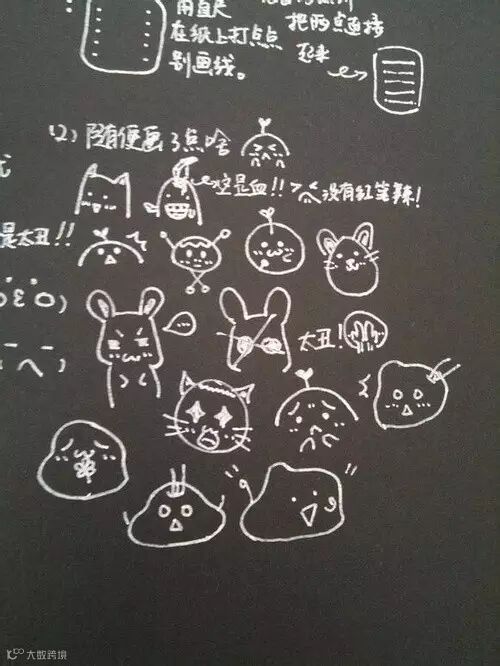 用直尺
在纸上打点点
别画线。
把两点连接
起来
(2) 随便画了点啥
这是血!! 没有红笔辣!
是太丑!!
太丑!
大数跨境